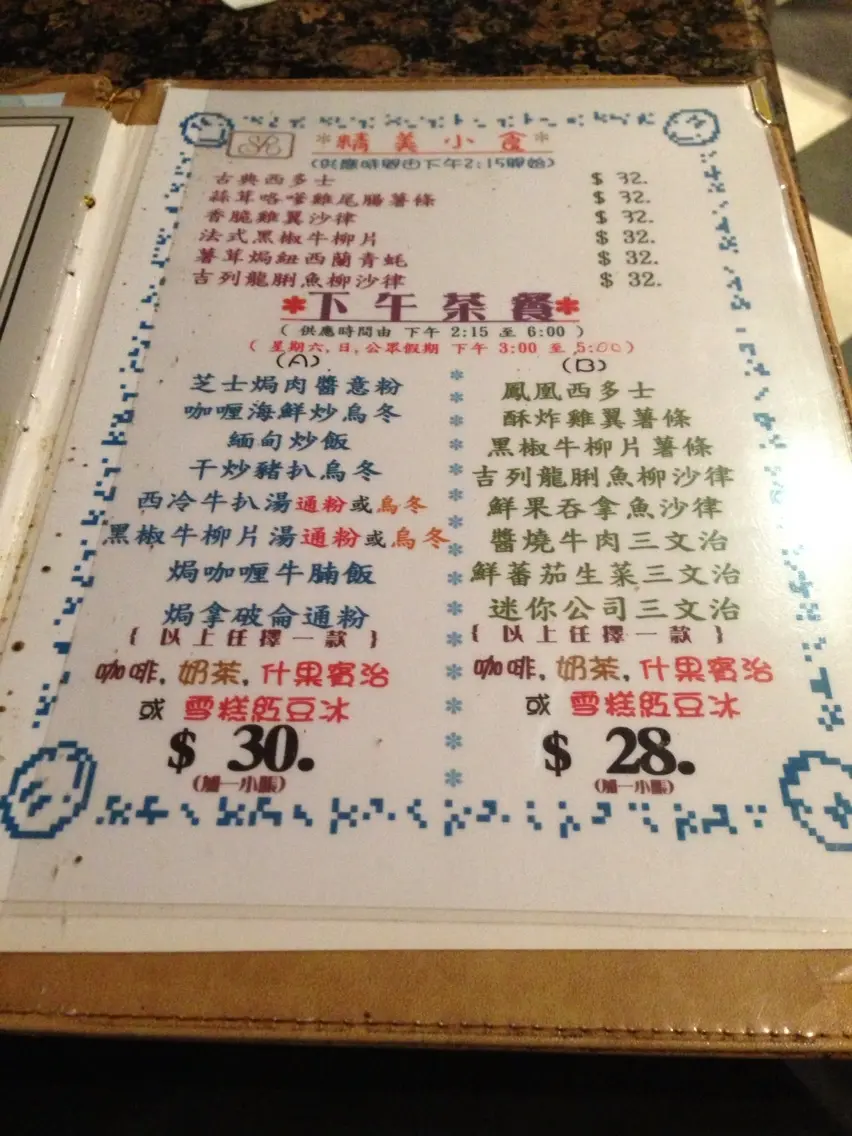 SR
*精美小食*
(供應時間由下午2:15開始)
古典西多士 $ 32.
蒜茸咯嗲雞尾腸薯條 $ 32.
香脆雞翼沙律 $ 32.
法式黑椒牛柳片 $ 32.
薯茸焗紐西蘭青蚝 $ 32.
吉列龍脷魚柳沙律 $ 32.
*下午茶餐*
( 供應時間由 下午 2:15 至 6:00 )
( 星期六,日,公眾假期 下午 3:00 至 5:00)
(A)
芝士焗肉醬意粉
咖喱海鮮炒烏冬
緬甸炒飯
干炒豬扒烏冬
西冷牛扒湯通粉或烏冬
黑椒牛柳片湯通粉或烏冬
焗咖喱牛腩飯
焗拿破侖通粉
{ 以上任擇一款 }
咖啡, 奶茶, 什果賓治
或 雪糕紅豆冰
$ 30.
(加一小賬)
(B)
鳳凰西多士
酥炸雞翼薯條
黑椒牛柳片薯條
吉列龍脷魚柳沙律
鮮果吞拿魚沙律
醬燒牛肉三文治
鮮蕃茄生菜三文治
迷你公司三文治
{ 以上任擇一款 }
咖啡, 奶茶, 什果賓治
或 雪糕紅豆冰
$ 28.
(加一小賬)